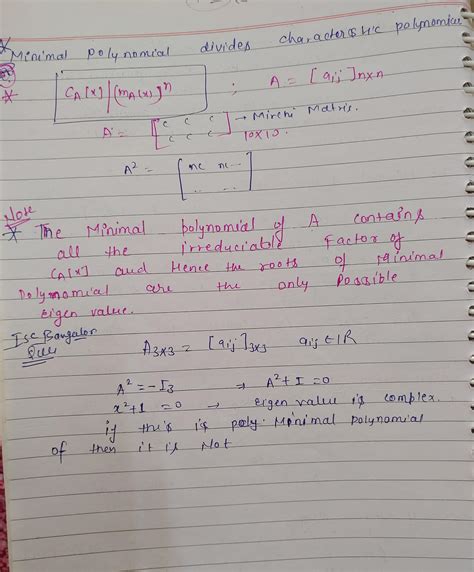 * Minimal polynomial divides characteristic polynomial
* C_A[x] | (m_A(x))^n ; A = [aij]n×n
A = [c c c / c c c] → Mirchi Matrix. 10×10.
A² = [nc nc... / ... ...]
Note
* The Minimal polynomial of A contains
all the irreduciable Factor of
C_A[x] and Hence the roots of Minimal
polynomial are the only possible
Eigen value.
Isc Bangalor
Que
A3×3 = [aij]3×3 aij ∈ IR
A² = -I3 → A² + I = 0
x² + 1 = 0 → Eigen value is complex.
if this is poly. Minimal Polynomial
of then it is Not